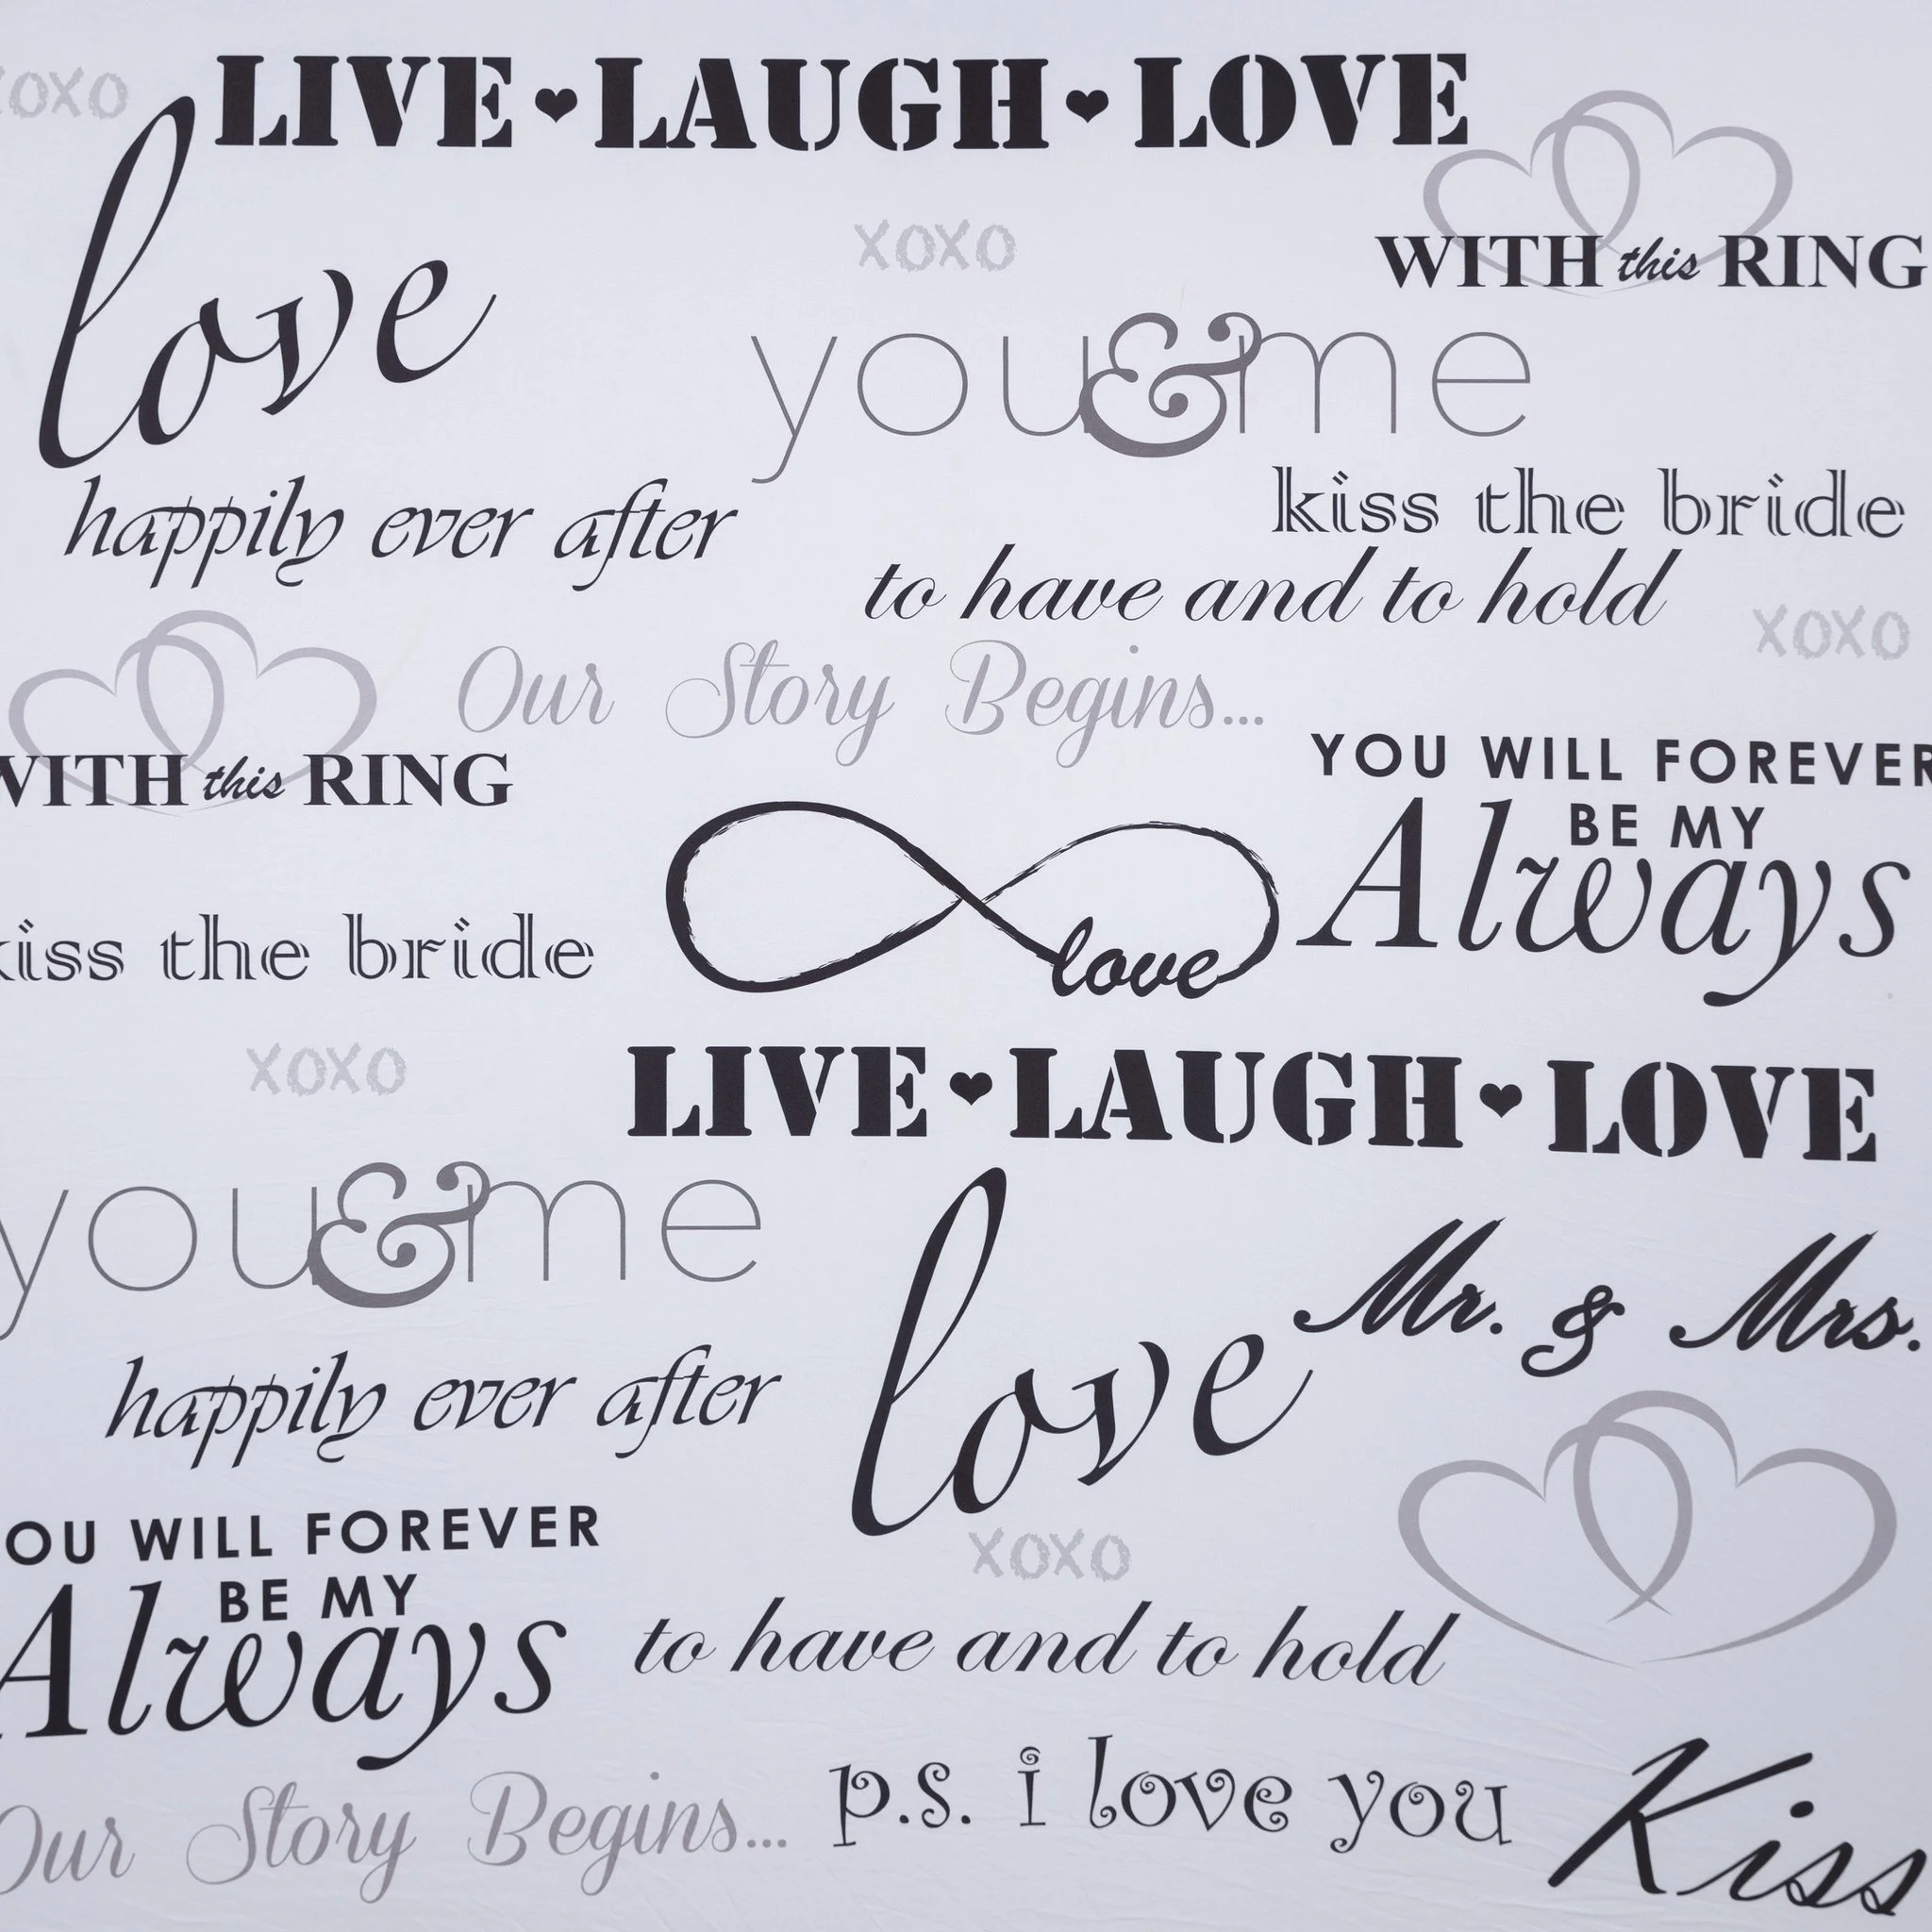 XOXO
LIVE ♥ LAUGH ♥ LOVE
love
XOXO
WITH this RING
you & me
happily ever after
kiss the bride
to have and to hold
XOXO
Our Story Begins...
WITH this RING
YOU WILL FOREVER
BE MY
Always
kiss the bride
love
XOXO
LIVE ♥ LAUGH ♥ LOVE
you & me
love
Mr. & Mrs.
happily ever after
OU WILL FOREVER
BE MY
Always
XOXO
to have and to hold
Our Story Begins...
p.s. i love you
Kiss